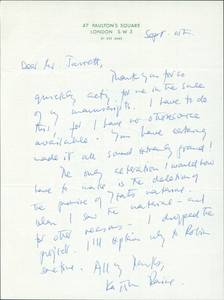 47 PAULTON'S SQUARE
LONDON S W 3
Sept.
Dear Mr. Jarrett,
Thank you for so
quickly acting for me in the sale
of my manuscripts. I have to do
this, for I have no other resource
available. You have certainly
made it all sound extremely grand!
The only alteration I would now
have to make is the deletion of
the promise of Yeats material.
when I saw the material - and
for other reasons - I dropped the
project. I'll explain why to Robin
sometime. All my thanks,
Kathleen Raine